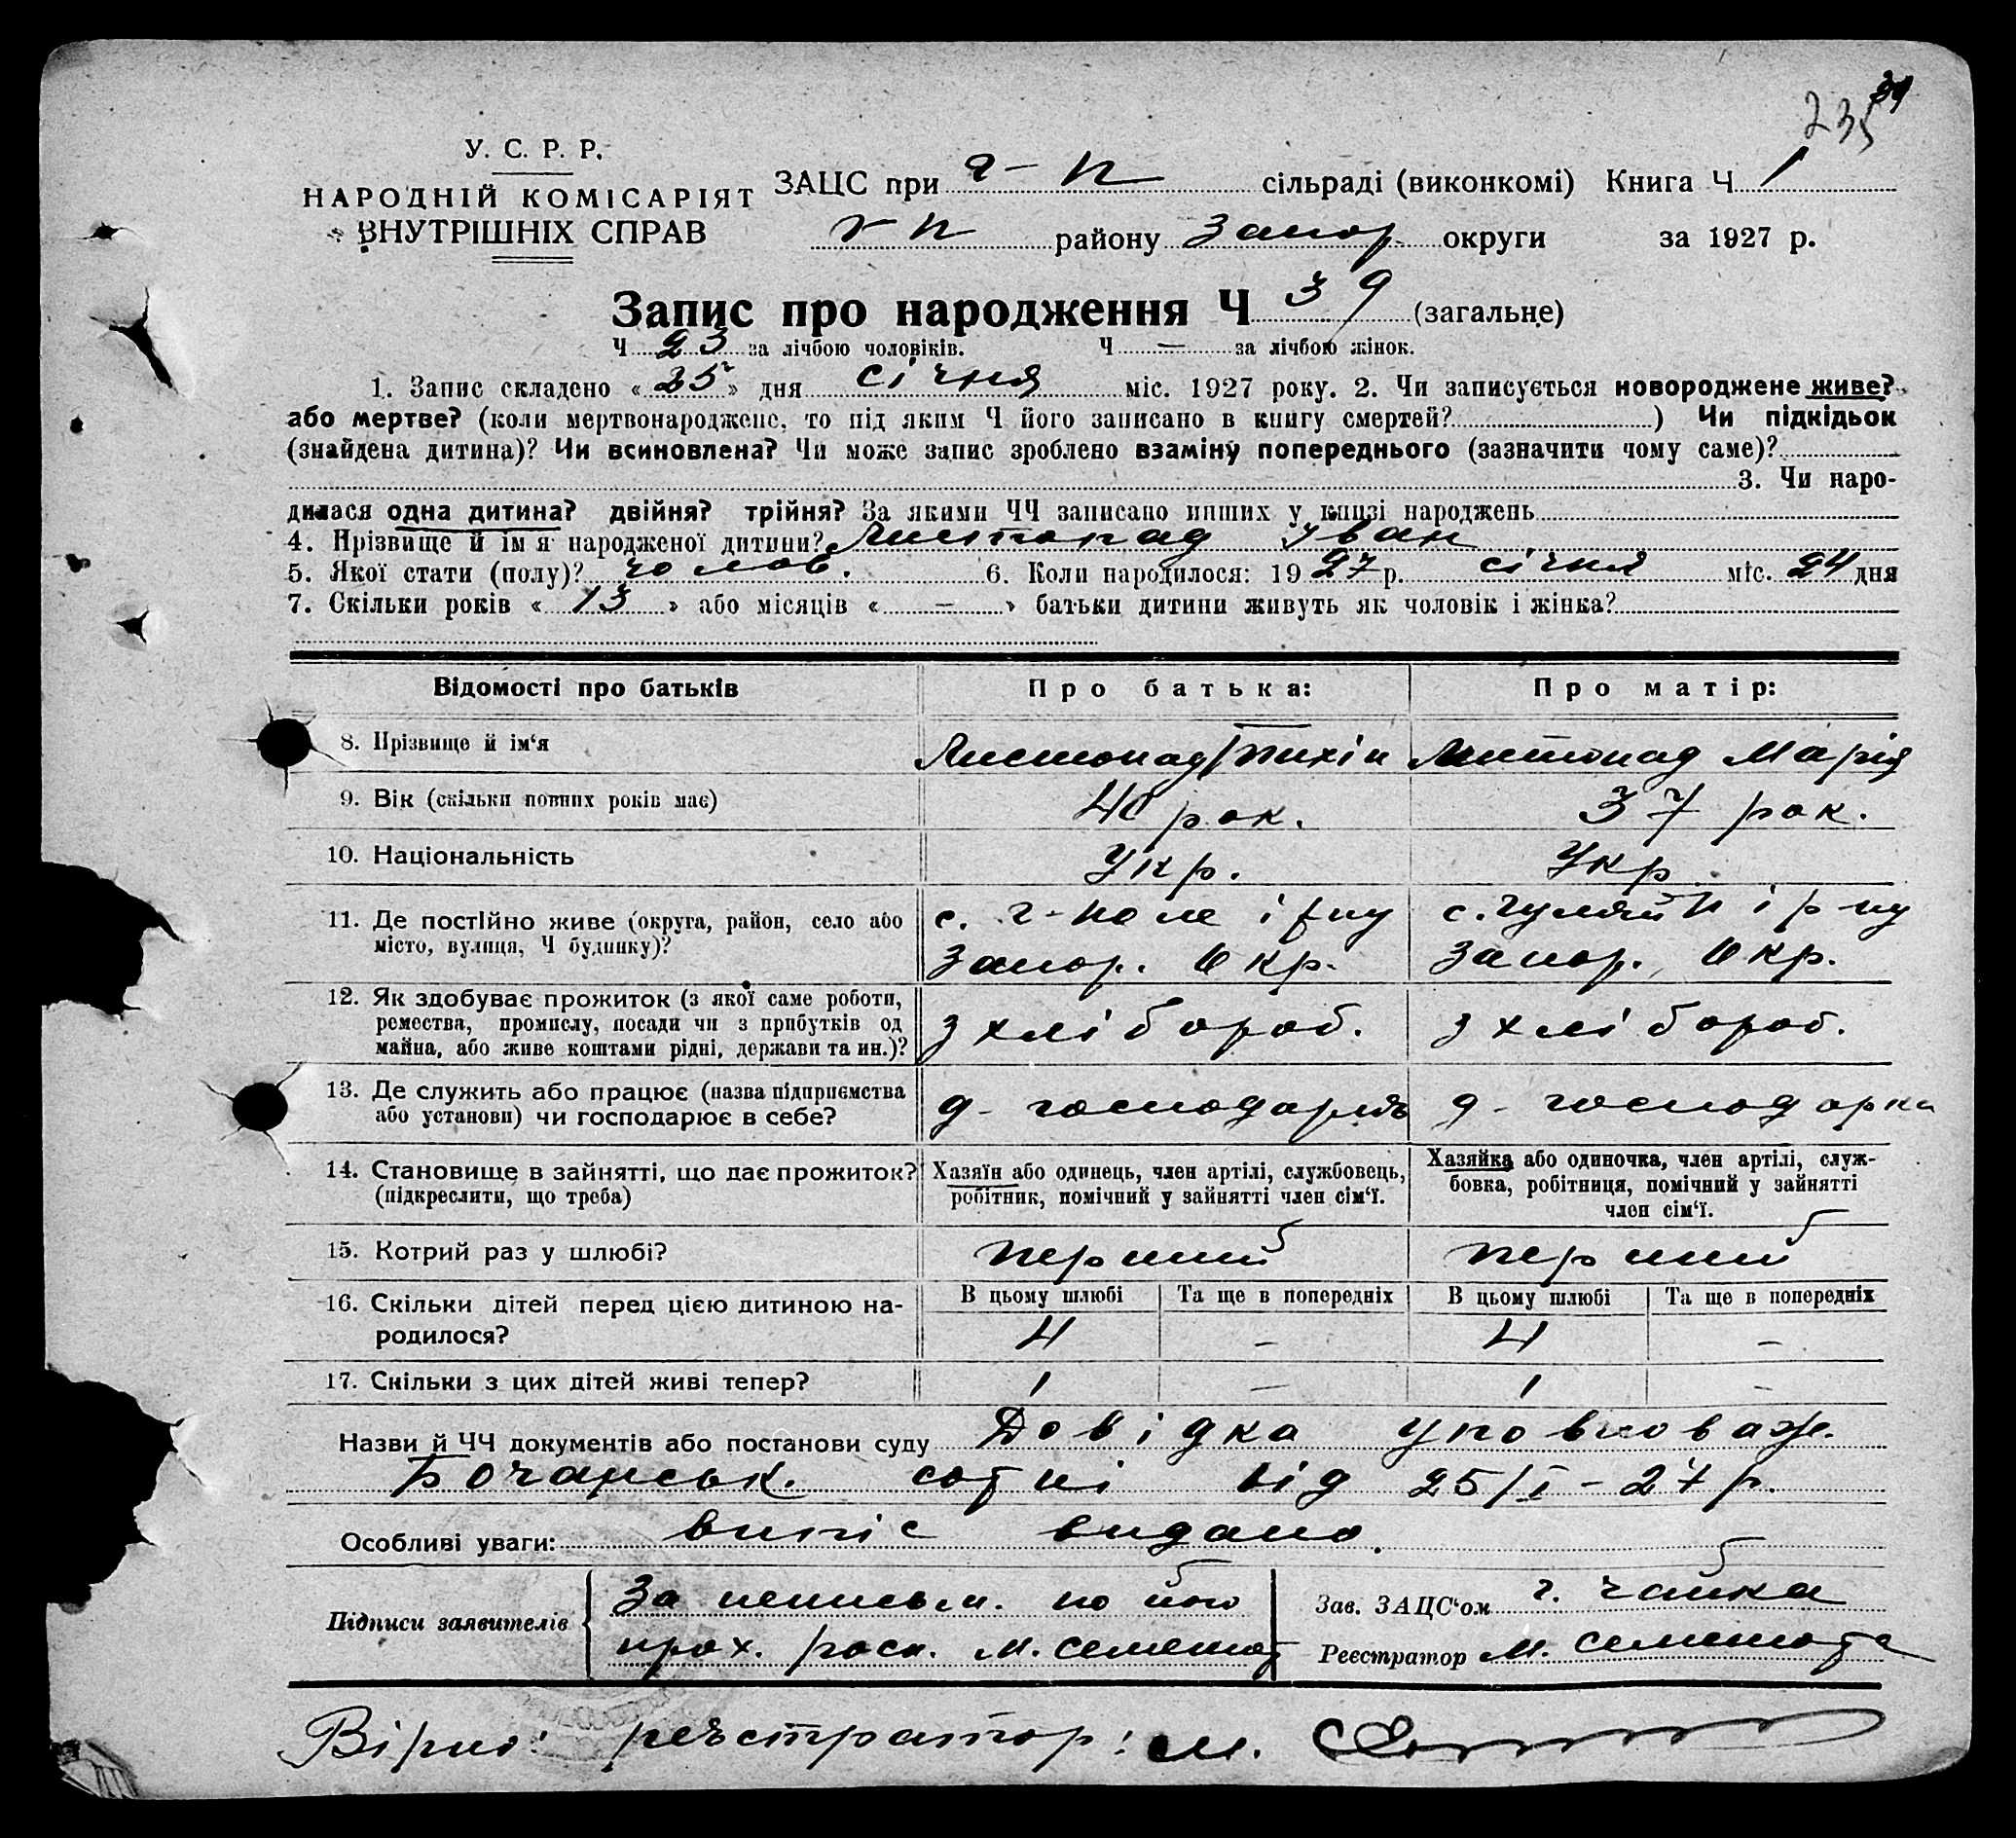 235
39
У. С. Р. Р.
НАРОДНІЙ КОМІСАРІЯТ
ВНУТРІШНІХ СПРАВ
ЗАЦС при г-п сільраді (виконкомі) Книга Ч 1
г-п району Запор. округи за 1927 р.
Запис про народження Ч 39 (загальне)
Ч 23 за лічбою чоловіків. Ч — за лічбою жінок.
1. Запис складено «25» дня січня міс. 1927 року. 2. Чи записується новороджене живе?
або мертве? (коли мертвонароджене, то під яким Ч його записано в книгу смертей? ) Чи підкідьок
(знайдена дитина)? Чи всиновлена? Чи може запис зроблено взаміну попереднього (зазначити чому саме)?
3. Чи наро-
дилася одна дитина? двійня? трійня? За якими ЧЧ записано инших у книзі народжень
4. Прізвище й ім'я народженої дитини? Листопад Іван
5. Якої стати (полу)? чолов. 6. Коли народилося: 1927 р. січня міс. 24 дня
7. Скільки років «13» або місяців «—» батьки дитини живуть як чоловік і жінка?
Відомості про батьків Про батька: Про матір:
8. Прізвище й ім'я Листопад Тихін Листопад Марія
9. Вік (скільки повних років має) 40 рок. 37 рок.
10. Національність Укр. Укр.
11. Де постійно живе (округа, район, село або с. г-поле і р-ну с. Гуляй п і р-ну
місто, вулиця, Ч будинку)? Запор. Окр. Запор. Окр.
12. Як здобуває прожиток (з якої саме роботи,
ремества, промислу, посади чи з прибутків од з хлібороб. з хлібороб.
майна, або живе коштами рідні, держави та ин.)?
13. Де служить або працює (назва підприємства д- господарь д- господарка
або установи) чи господарює в себе?
14. Становище в зайнятті, що дає прожиток? Хазяїн або одинець, член артілі, службовець, Хазяйка або одиночка, член артілі, служ-
(підкреслити, що треба) робітник, помічний у зайнятті член сім'ї. бовка, робітниця, помічний у зайнятті
член сім'ї.
15. Котрий раз у шлюбі? перший перший
16. Скільки дітей перед цією дитиною на- В цьому шлюбі Та ще в попередніх В цьому шлюбі Та ще в попередніх
родилося? 4 — 4 —
17. Скільки з цих дітей живі тепер? 1 — 1 —
Назви й ЧЧ документів або постанови суду Довідка уповноваж.
Бочанськ. сотні від 25/I-27 р.
Особливі уваги: випіс видано.
Підписи заявителів За неписьм. по його Зав. ЗАЦС'ом г. Чайка
прох. росп. м. Семенот Реєстратор м. Семенота
Вірно: реєстратор: м.